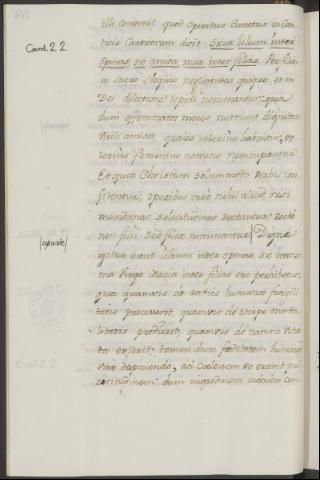 illi convenit quod Spiritus Sanctus in Can-
Cant. 2. 2.
ticis Canticorum dicit. Sicut lilium inter
spinas, sic amica mea inter filias. Per filias
in sacro eloquio negligentes quique, et in
Dei dilectione tepidi nominantur: quia
dum effeminatos mores nutriunt dignitate
virili amissa, quales interius habentur, ex-
terius femineo nomine nuncupantur.
Et quia Christum solummodo verbis con-
fitentur, operibus vero nihil aliud, nisi
mundanas solicitudines sectantur, recte
non filii, sed filiae nominantur. Digne
(aparte)
igitur sicut lilium inter spinas, sic beatis.
ma Virgo Maria inter filias esse perhibetur,
quia quamvis de radice humanae fragili-
tatis processerit, quamvis de stirpe morta-
litatis prodierit, quamvis de natura vitia-
ta exierit, tamen dum foeditatem humanae
vitae despiciendo, ad coelestem se erexit pul-
critudinem, dum nigredinem